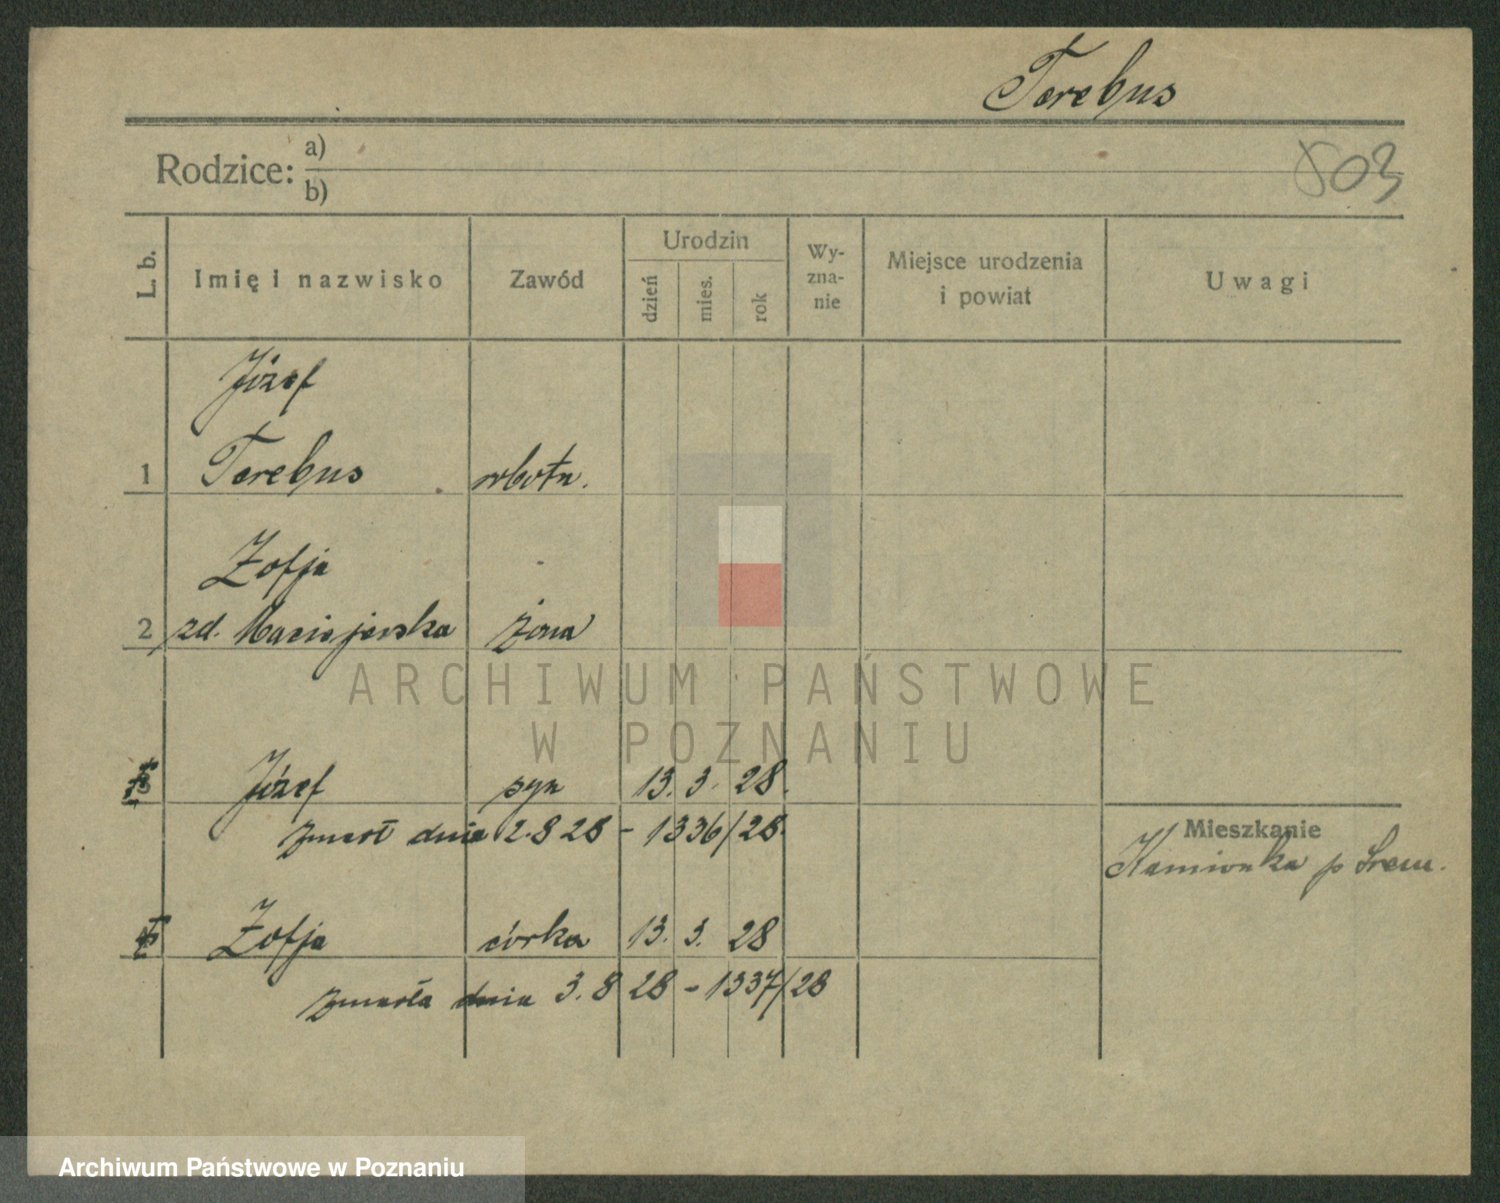 Terebus
Rodzice: a)
b)
503
L. b. Imię i nazwisko Zawód Urodzin dzień mies. rok Wy-zna-nie Miejsce urodzenia i powiat Uwagi
Józef
1 Terebus robotn.
Zofja
2 zd. Maciejewska żona
ARCHIWUM PAŃSTWOWE
W POZNANIU
3 Józef syn 13. 3. 28.
zmarł dnia 2.8 28 - 1336/28.
Mieszkanie
Kamionka p Śrem.
4 Zofja córka 13. 3. 28
zmarła dnia 3.8 28 - 1337/28
Archiwum Państwowe w Poznaniu